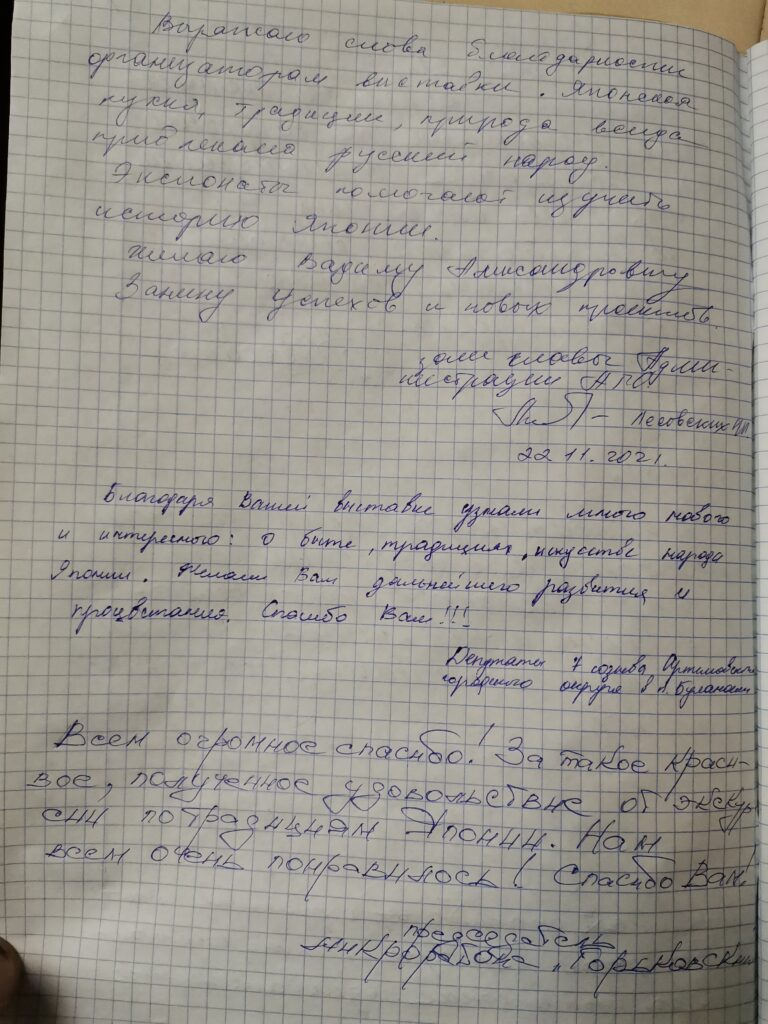 Выражаю слова благодарности
организаторам выставки. Японская
кухня, традиции, природа всегда
привлекала русский народ.
Экспонаты помогают изучать
историю Японии.
Желаю Вадиму Александровичу
Занину успехов и новых проектов.
зам главы Адми-
нистрации АГО
Лесовских
22 11. 2021.
Благодаря Вашей выставке узнали много нового
и интересного: о быте, традициях, искусстве народа
Японии. Желаем Вам дальнейшего развития и
процветания. Спасибо Вам!!!
Депутаты 7 созыва Артемовского
городского округа в п. Буланаш
Всем огромное спасибо! За такое краси-
вое, полученное удовольствие от экскур
сии по традициям Японии. Нам
всем очень понравилось! Спасибо Вам!
председатель
микрорайона "Горьковский